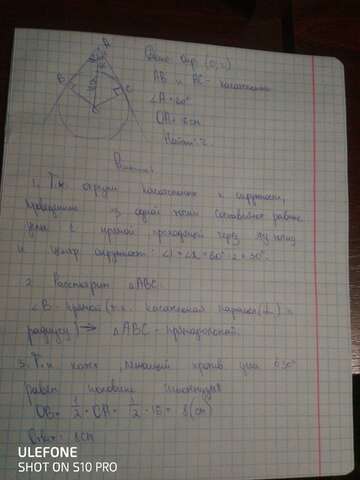 A
B
C
Дано: Окр. (O;r)
AB и AC - касательные
∠A = 60°
OA =
Найти: r
1. Т.к. отрезки касательных к окружности,
проведённые из одной точки составляют равные
углы с прямой проходящей через эту точку
и центр окружности: ∠1 = ∠2 = 60° : 2 = 30°.
2. Рассмотрим △ABC:
∠B - прямой (т.к. касательная (⊥)
радиусу) → △ABC - прямоугольный.
3. Т.к. катет, лежащий против угла в 30°
равен половине гипотенузы
OB = 1/2 · OA = 1/2 · 16 = 8 (см)
Ответ: 8 см
ULEFONE
SHOT ON S10 PRO